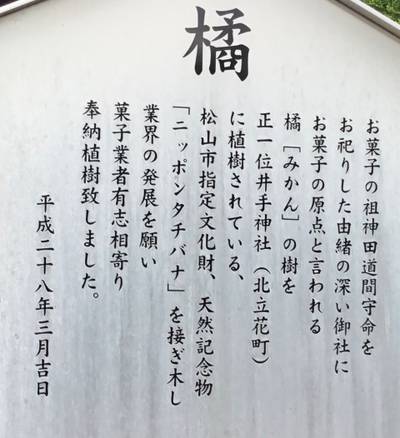 橘
お菓子の祖神田道間守命を
お祀りした由緒の深い御社に
お菓子の原点と言われる
橘［みかん］の樹を
正一位井手神社（北立花町）
に植樹されている、
松山市指定文化財、天然記念物
「ニッポンタチバナ」を接ぎ木し
業界の発展を願い
菓子業者有志相寄り
奉納植樹致しました。
平成二十八年三月吉日